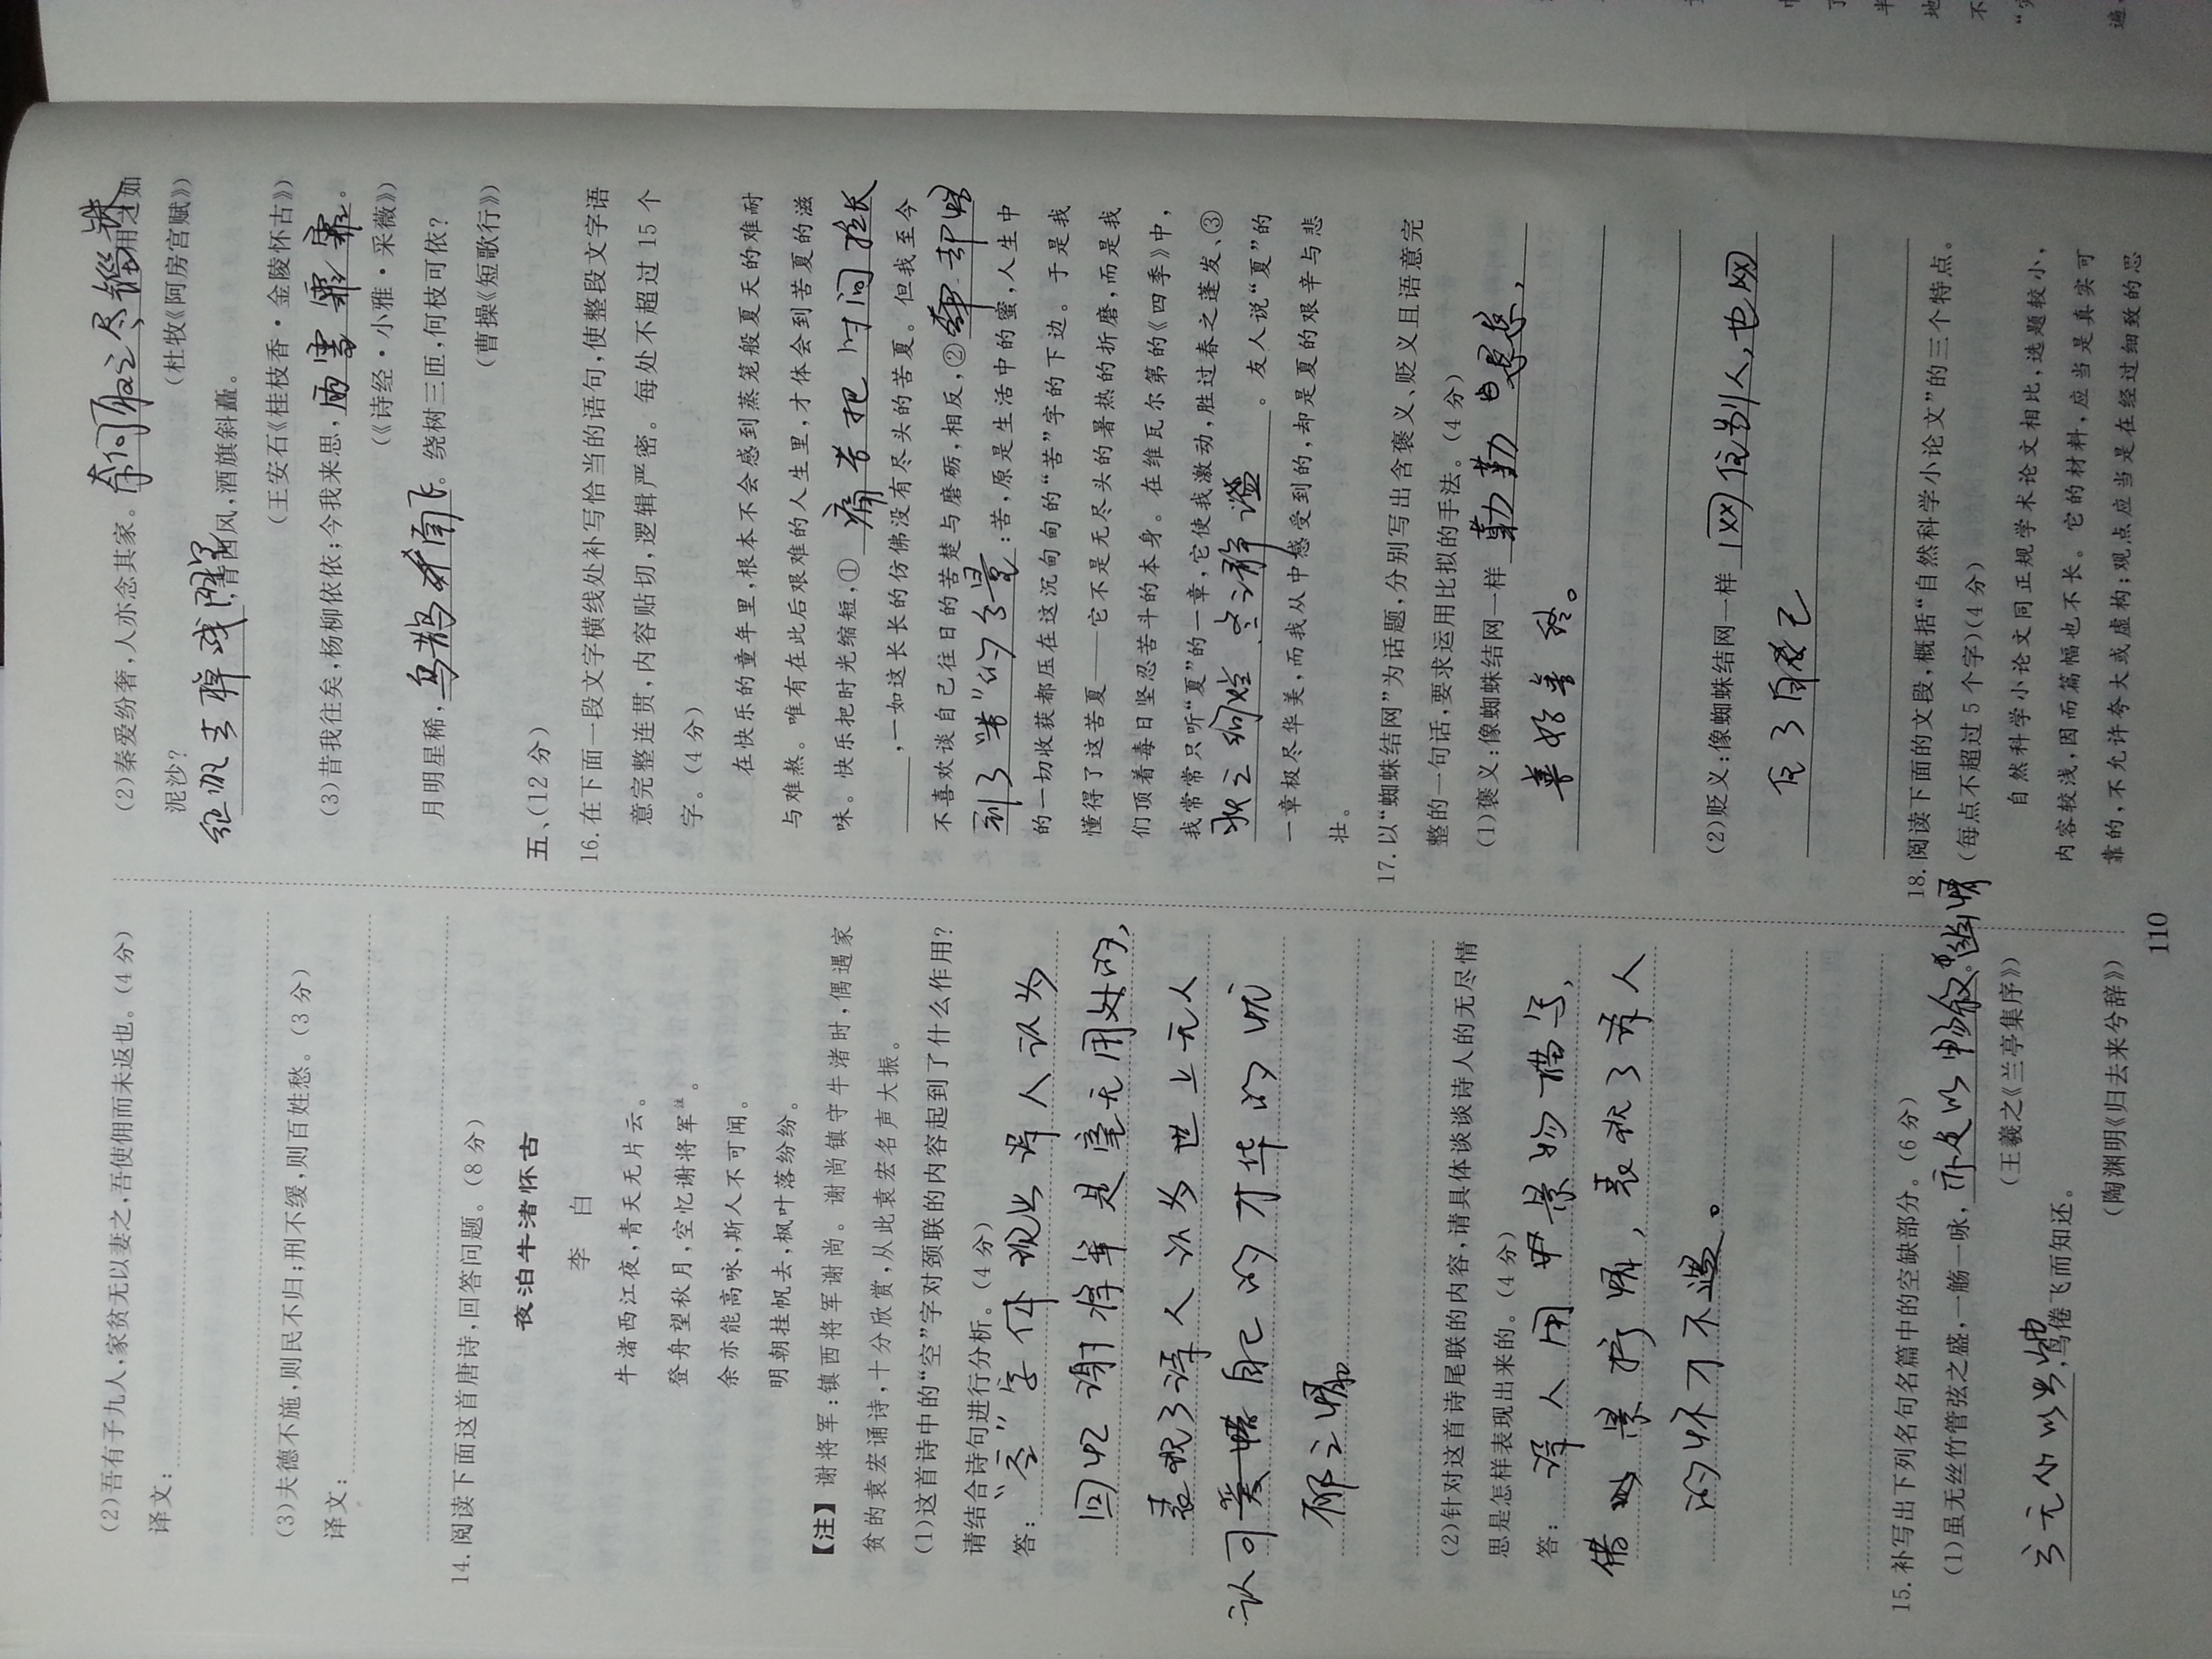 (2)吾有子九人,家贫无以妻之,吾使佣而未返也。(4分)
译文:
(3)夫德不施,则民不归;刑不缓,则百姓愁。(3分)
译文:
14. 阅读下面这首唐诗,回答问题。(8分)
夜泊牛渚怀古
李 白
牛渚西江夜,青天无片云。
登舟望秋月,空忆谢将军注。
余亦能高咏,斯人不可闻。
明朝挂帆去,枫叶落纷纷。
【注】 谢将军:镇西将军谢尚。谢尚镇守牛渚时,偶遇家
贫的袁宏诵诗,十分欣赏,从此袁宏名声大振。
(1)这首诗中的“空”字对颈联的内容起到了什么作用?
请结合诗句进行分析。(4分)
答: “空”字体现出诗人认为
回忆谢将军是毫无用处的,
表现了诗人认为世上无人
认可自己的才华的忧
郁之情。
(2)针对这首诗尾联的内容,请具体谈谈诗人的无尽情
思是怎样表现出来的。(4分)
答: 诗人用景物描写,
借景抒情,表现了诗人
的怀才不遇。
15. 补写出下列名句名篇中的空缺部分。(6分)
(1)虽无丝竹管弦之盛,一觞一咏,亦足以畅叙幽情。
(王羲之《兰亭集序》)
云无心以出岫,鸟倦飞而知还。
(陶渊明《归去来兮辞》)
110
(2)秦爱纷奢,人亦念其家。奈何取之尽锱铢用之如
泥沙?
(杜牧《阿房宫赋》)
征帆去棹残阳里,背西风,酒旗斜矗。
(王安石《桂枝香·金陵怀古》)
(3)昔我往矣,杨柳依依;今我来思,雨雪霏霏。
(《诗经·小雅·采薇》)
月明星稀,乌鹊南飞。绕树三匝,何枝可依?
(曹操《短歌行》)
五、(12分)
16. 在下面一段文字横线处补写恰当的语句,使整段文字语
意完整连贯,内容贴切,逻辑严密。每处不超过15个
字。(4分)
在快乐的童年里,根本不会感到蒸笼般夏天的难耐
与难熬。唯有在此后艰难的人生里,才体会到苦夏的滋
味。快乐把时光缩短,①痛苦把时间拉长
,一如这长长的仿佛没有尽头的苦夏。但我至今
不喜欢谈自己往日的苦楚与磨砺,相反,②却悟
到了“苦”的分量:苦,原是生活中的蜜,人生中
的一切收获都压在这沉甸甸的“苦”字的下边。于是我
懂得了这苦夏——它不是无尽头的暑热的折磨,而是我
们顶着毒日坚忍苦斗的本身。在维瓦尔第的《四季》中,
我常常只听“夏”的一章,它使我激动,胜过春之蓬发、③
秋之绚烂 冬之静谧。友人说“夏”的
一章极尽华美,而我从中感受到的,却是夏的艰辛与悲
壮。
17. 以“蜘蛛结网”为话题,分别写出含褒义、贬义且语意完
整的一句话,要求运用比拟的手法。(4分)
(1)褒义:像蜘蛛结网一样 勤勤恳恳,
善始善终。
(2)贬义:像蜘蛛结网一样 网住别人,也网
住了自己
18. 阅读下面的文段,概括“自然科学小论文”的三个特点。
(每点不超过5个字)(4分)
自然科学小论文同正规学术论文相比,选题较小,
内容较浅,因而篇幅也不长。它的材料,应当是真实可
靠的,不允许夸大或虚构;观点应当是在经过细致的思